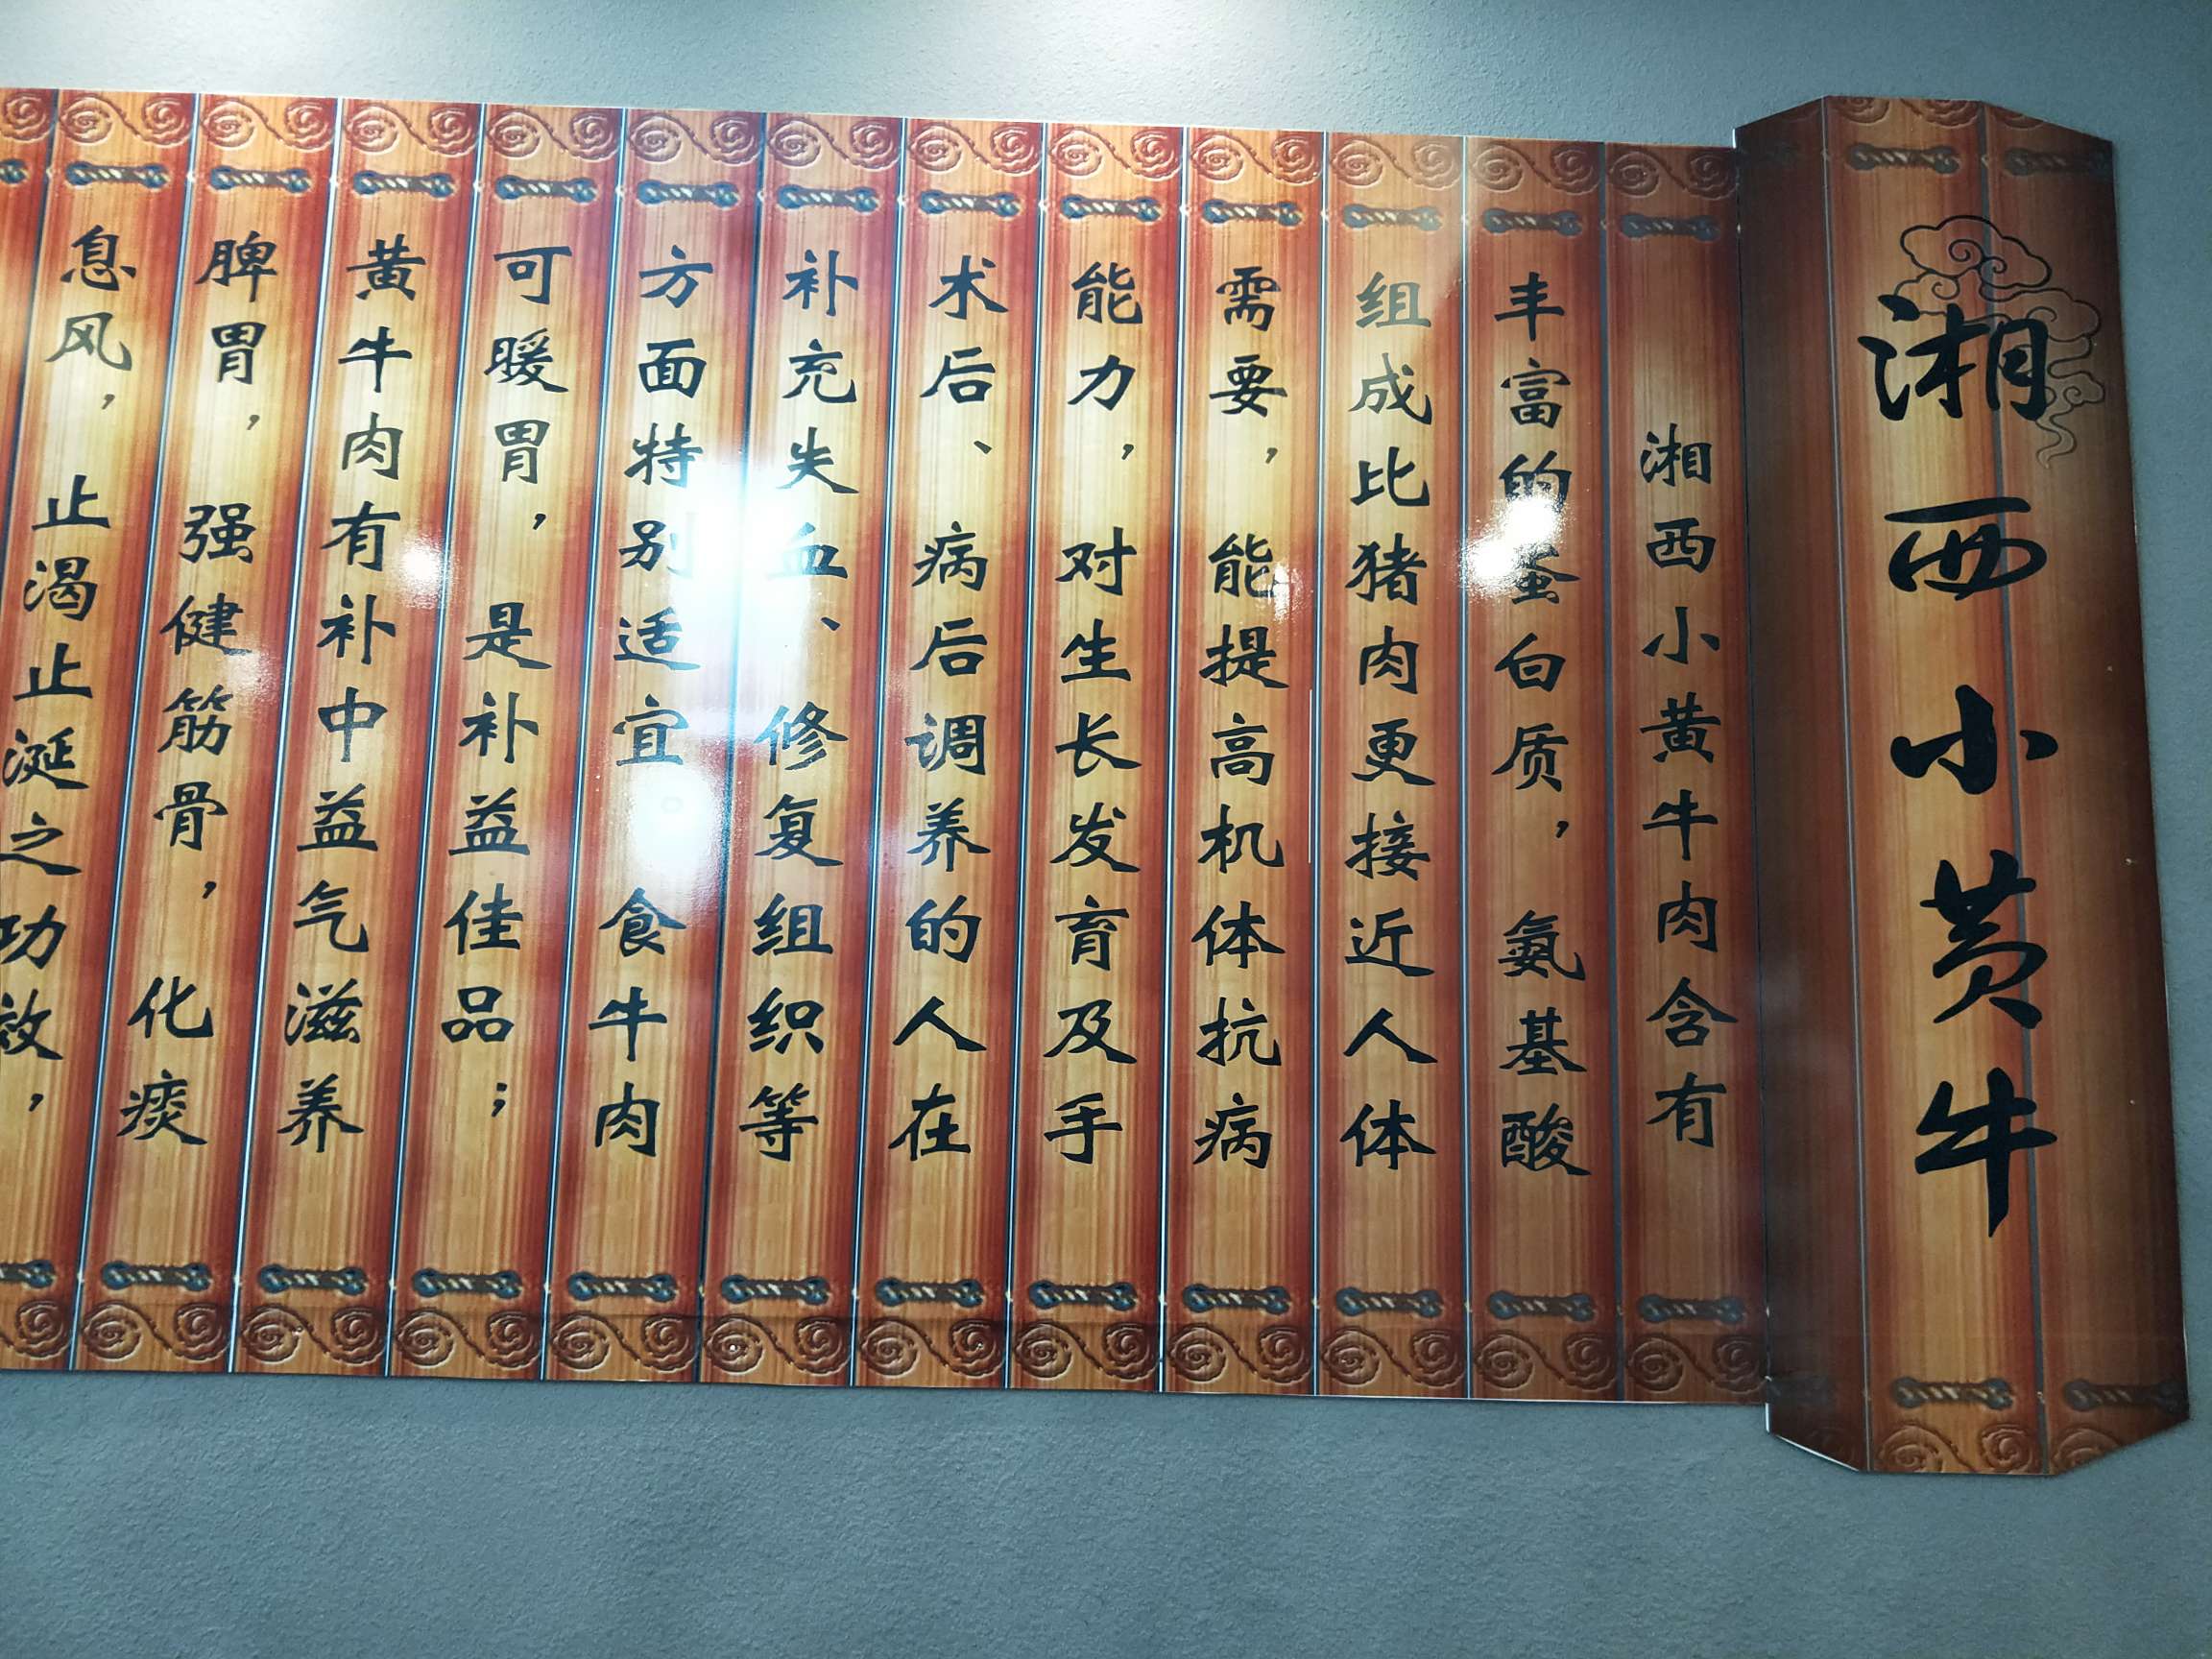 湘西小黄牛
湘西小黄牛肉含有
丰富的蛋白质，氨基酸
组成比猪肉更接近人体
需要，能提高机体抗病
能力，对生长发育及手
术后、病后调养的人在
补充失血、修复组织等
方面特别适宜。食牛肉
可暖胃，是补益佳品；
黄牛肉有补中益气滋养
脾胃，强健筋骨，化痰
息风，止渴止涎之功效，